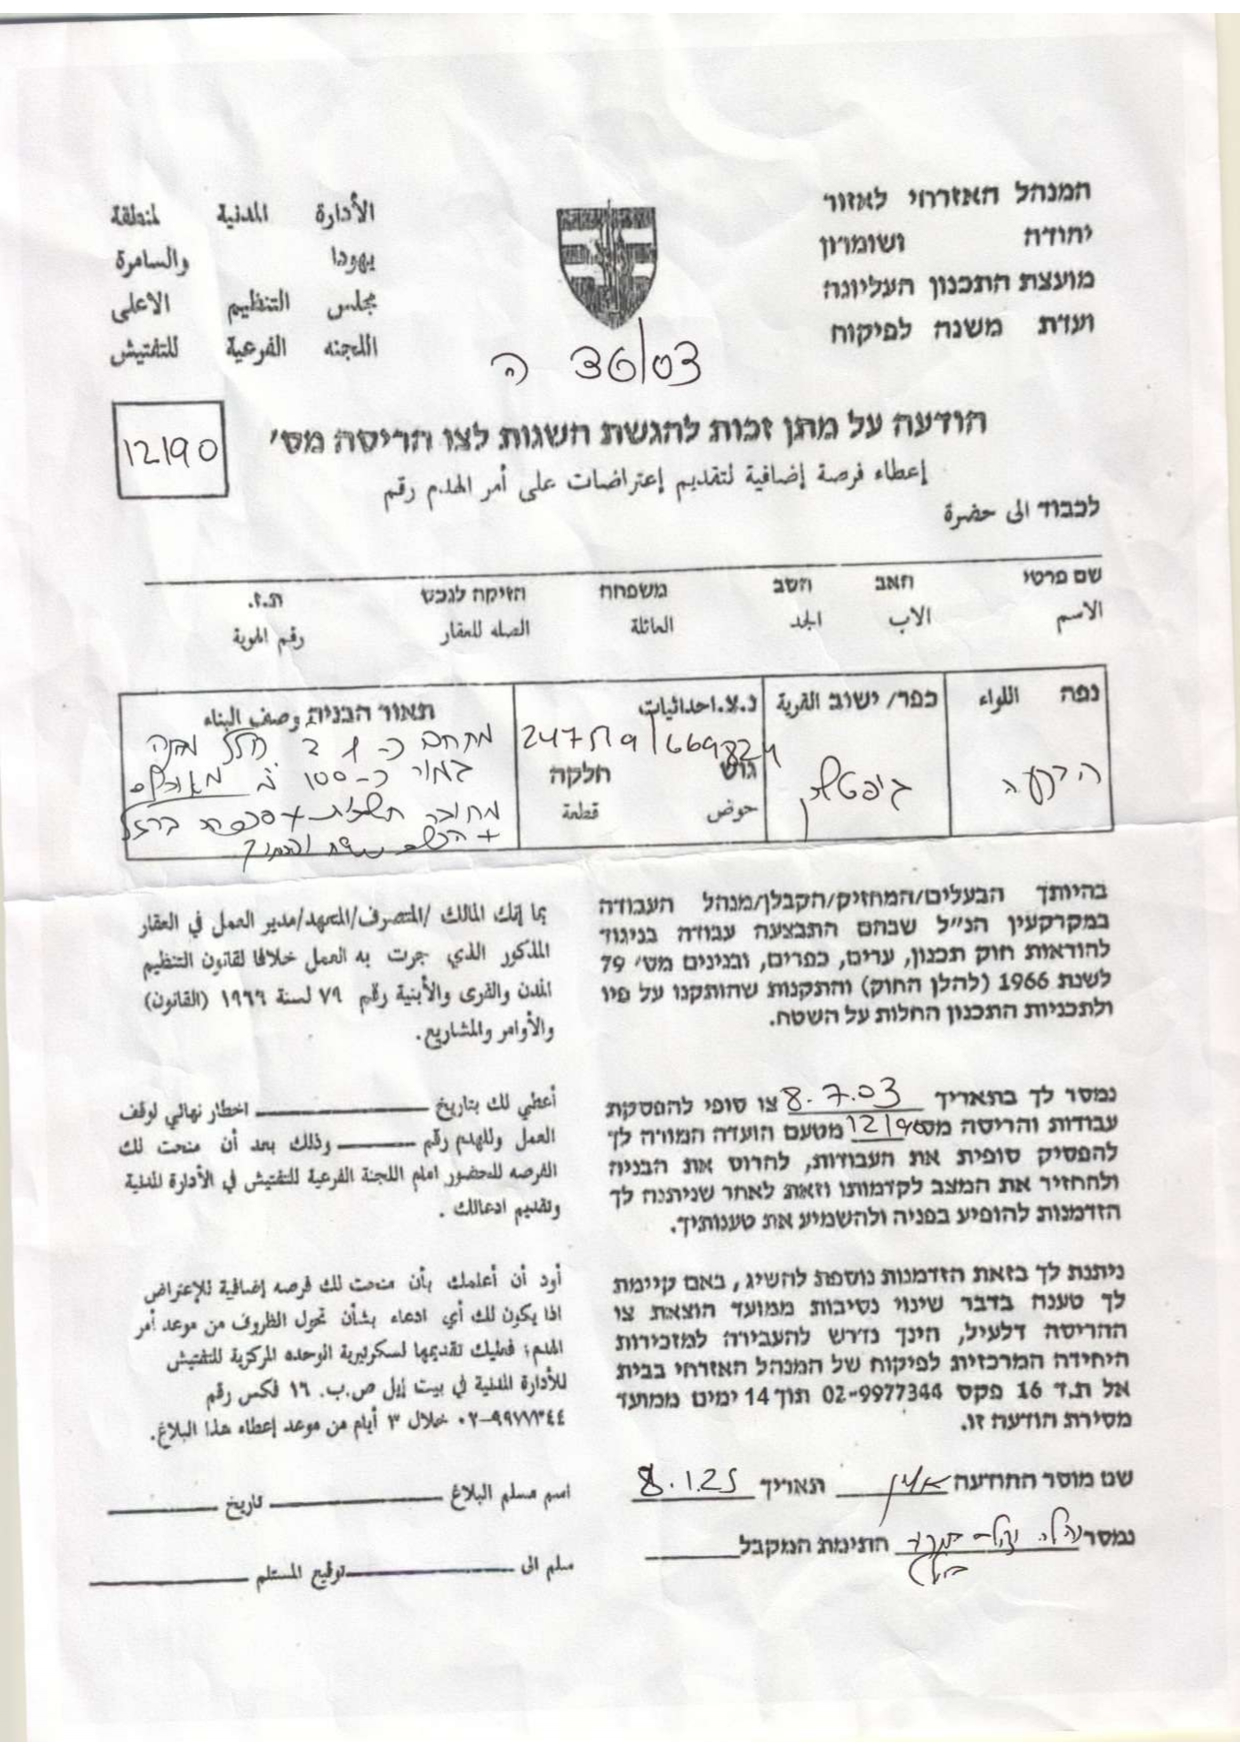 המנהל האזרחי לאזור
יהודה ושומרון
מועצת התכנון העליונה
ועדת משנה לפיקוח
الأدارة المدنية لمنطقة
يهودا والسامرة
مجلس التنظيم الاعلى
اللجنه الفرعية للتفتيش
ה 36/03
הודעה על מתן זכות להגשת השגות לצו הריסה מס׳
12190
إعطاء فرصة إضافية لتقديم إعتراضات على أمر الهدم رقم
לכבוד الى حضرة
שם פרטי האב הסב משפחה הזיקה לנכס ת.ז.
الاسم الاب الجد العائلة الصله للعقار رقم الهوية
נפה اللواء
הבקעה
כפר/ ישוב القرية
ג׳יפטליק
נ.צ. احداثيات
גוש חלקה
حوض قطعة
תאור הבניה وصف البناء
מתחם
בהיותך הבעלים/המחזיק/הקבלן/מנהל העבודה
במקרקעין הנ״ל שבהם התבצעה עבודה בניגוד
להוראות חוק תכנון, ערים, כפרים, ובנינים מס׳ 79
לשנת 1966 (להלן החוק) והתקנות שהותקנו על פיו
ולתכניות התכנון החלות על השטח.
بما إنك المالك /المتصرف/المتعهد/مدير العمل في العقار
المذكور الذي جرت به العمل خلافا لقانون التنظيم
المدن والقرى والأبنية رقم ٧٩ لسنة ١٩٦٦ (القانون)
والأوامر والمشاريع.
נמסר לך בתאריך 8.7.03 צו סופי להפסקת
עבודות והריסה מס׳ 12190 מטעם הועדה המורה לך
להפסיק סופית את העבודות, להרוס את הבניה
ולהחזיר את המצב לקדמותו וזאת לאחר שניתנה לך
הזדמנות להופיע בפניה ולהשמיע את טענותיך.
أعطي لك بتاريخ ــــــــ اخطار نهائي لوقف
العمل وللهدم رقم ــــــــ وذلك بعد أن منحت لك
الفرصه للحضور امام اللجنة الفرعية للتفتيش في الأدارة المدنية
وتقديم ادعالك .
ניתנת לך בזאת הזדמנות נוספת להשיג, באם קיימת
לך טענה בדבר שינוי נסיבות ממועד הוצאת צו
ההריסה דלעיל, הינך נדרש להעבירה למזכירות
היחידה המרכזית לפיקוח של המנהל האזרחי בבית
אל ת.ד 16 פקס 02-9977344 תוך 14 ימים ממועד
מסירת הודעה זו.
أود أن أعلمك بأن منحت لك فرصه إضافية للإعتراض
اذا يكون لك أي ادعاء بشأن تحول الظروف من موعد أمر
الهدم؛ فعليك تقديمها لسكرتيرية الوحده المركزية للتفتيش
للأدارة المدنية في بيت إيل ص.ب. ١٦ فكس رقم
٠٢-٩٩٧٧٣٤٤ خلال ٣ أيام من موعد إعطاء هذا البلاغ.
שם מוסר ההודעה תאריך 8.1.25
נמסר חתימת המקבל
اسم مسلم البلاغ ــــــــ تاريخ ــــــــ
سلم الى ــــــــ توقيع المستلم ــــــــ